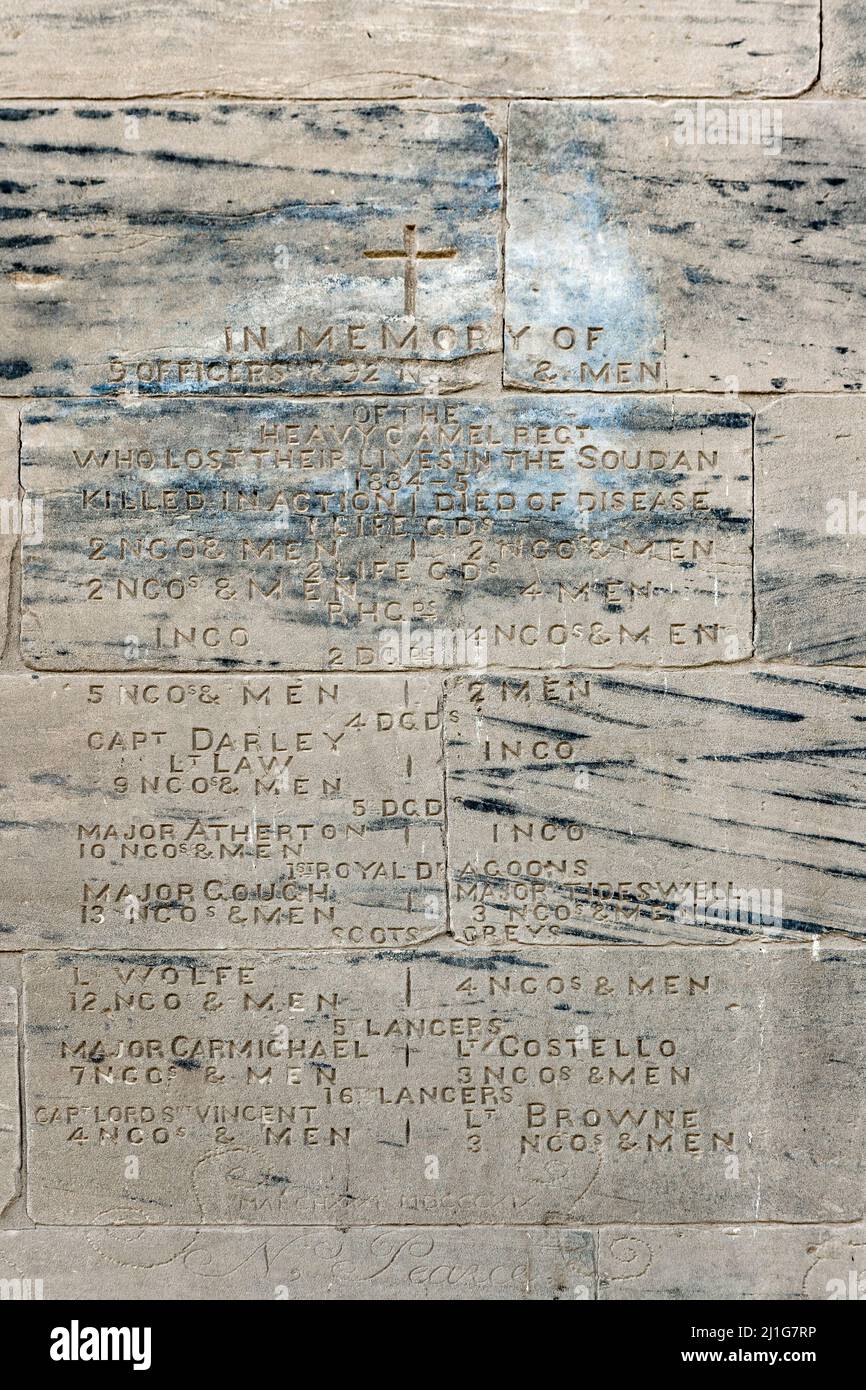 IN MEMORY OF
9 OFFICERS & 92 N & MEN
OF THE
HEAVY CAMEL REGT
WHO LOST THEIR LIVES IN THE SOUDAN
1884-5
KILLED IN ACTION | DIED OF DISEASE
1 LIFE GDS
2 NCOS & MEN | 2 NCOS & MEN
2 LIFE GDS
2 NCOS & MEN 4 MEN
RHGDS
1 NCO 4 NCOS & MEN
2 DGDS
5 NCOS & MEN | 2 MEN
4 DGDS
CAPT DARLEY
LT LAW | 1 NCO
9 NCOS & MEN
5 DGDS
MAJOR ATHERTON | 1 NCO
10 NCOS & MEN
1ST ROYAL DRAGOONS
MAJOR GOUGH | MAJOR TIDESWELL
13 NCOS & MEN 3 NCOS & MEN
SCOTS GREYS
L WOLFE | 4 NCOS & MEN
12 NCO & MEN
5T LANCERS
MAJOR CARMICHAEL | LT COSTELLO
7 NCOS & MEN 3 NCOS & MEN
16T LANCERS
CAPT LORD ST VINCENT | LT BROWNE
4 NCOS & MEN 3 NCOS & MEN
N. Pearce
alamy
Image ID: 2J1G7RP
www.alamy.com